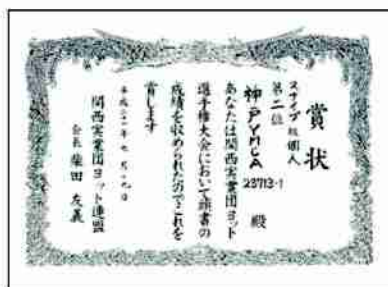 賞状
スナイプ級個人
第二位
神戸YMCA
23713-1
殿
あなたは関西実業団ヨット
選手権大会において頭書の
成績を収められたのでこれを
賞します
平成二十一年七月十九日
関西実業団ヨット連盟
会長 柴田友義